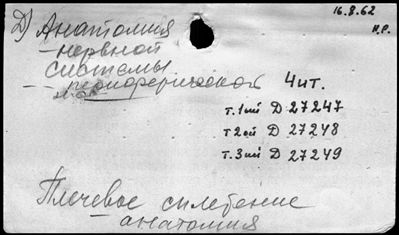 16.8.62
Н.Р.
Д) Анатомия
— нервной
системы
— периферической
4 чит.
т. 1ый D 27247
т 2ой D 27248
т. 3ий D 27249
Плечевое сплетение
— анатомия